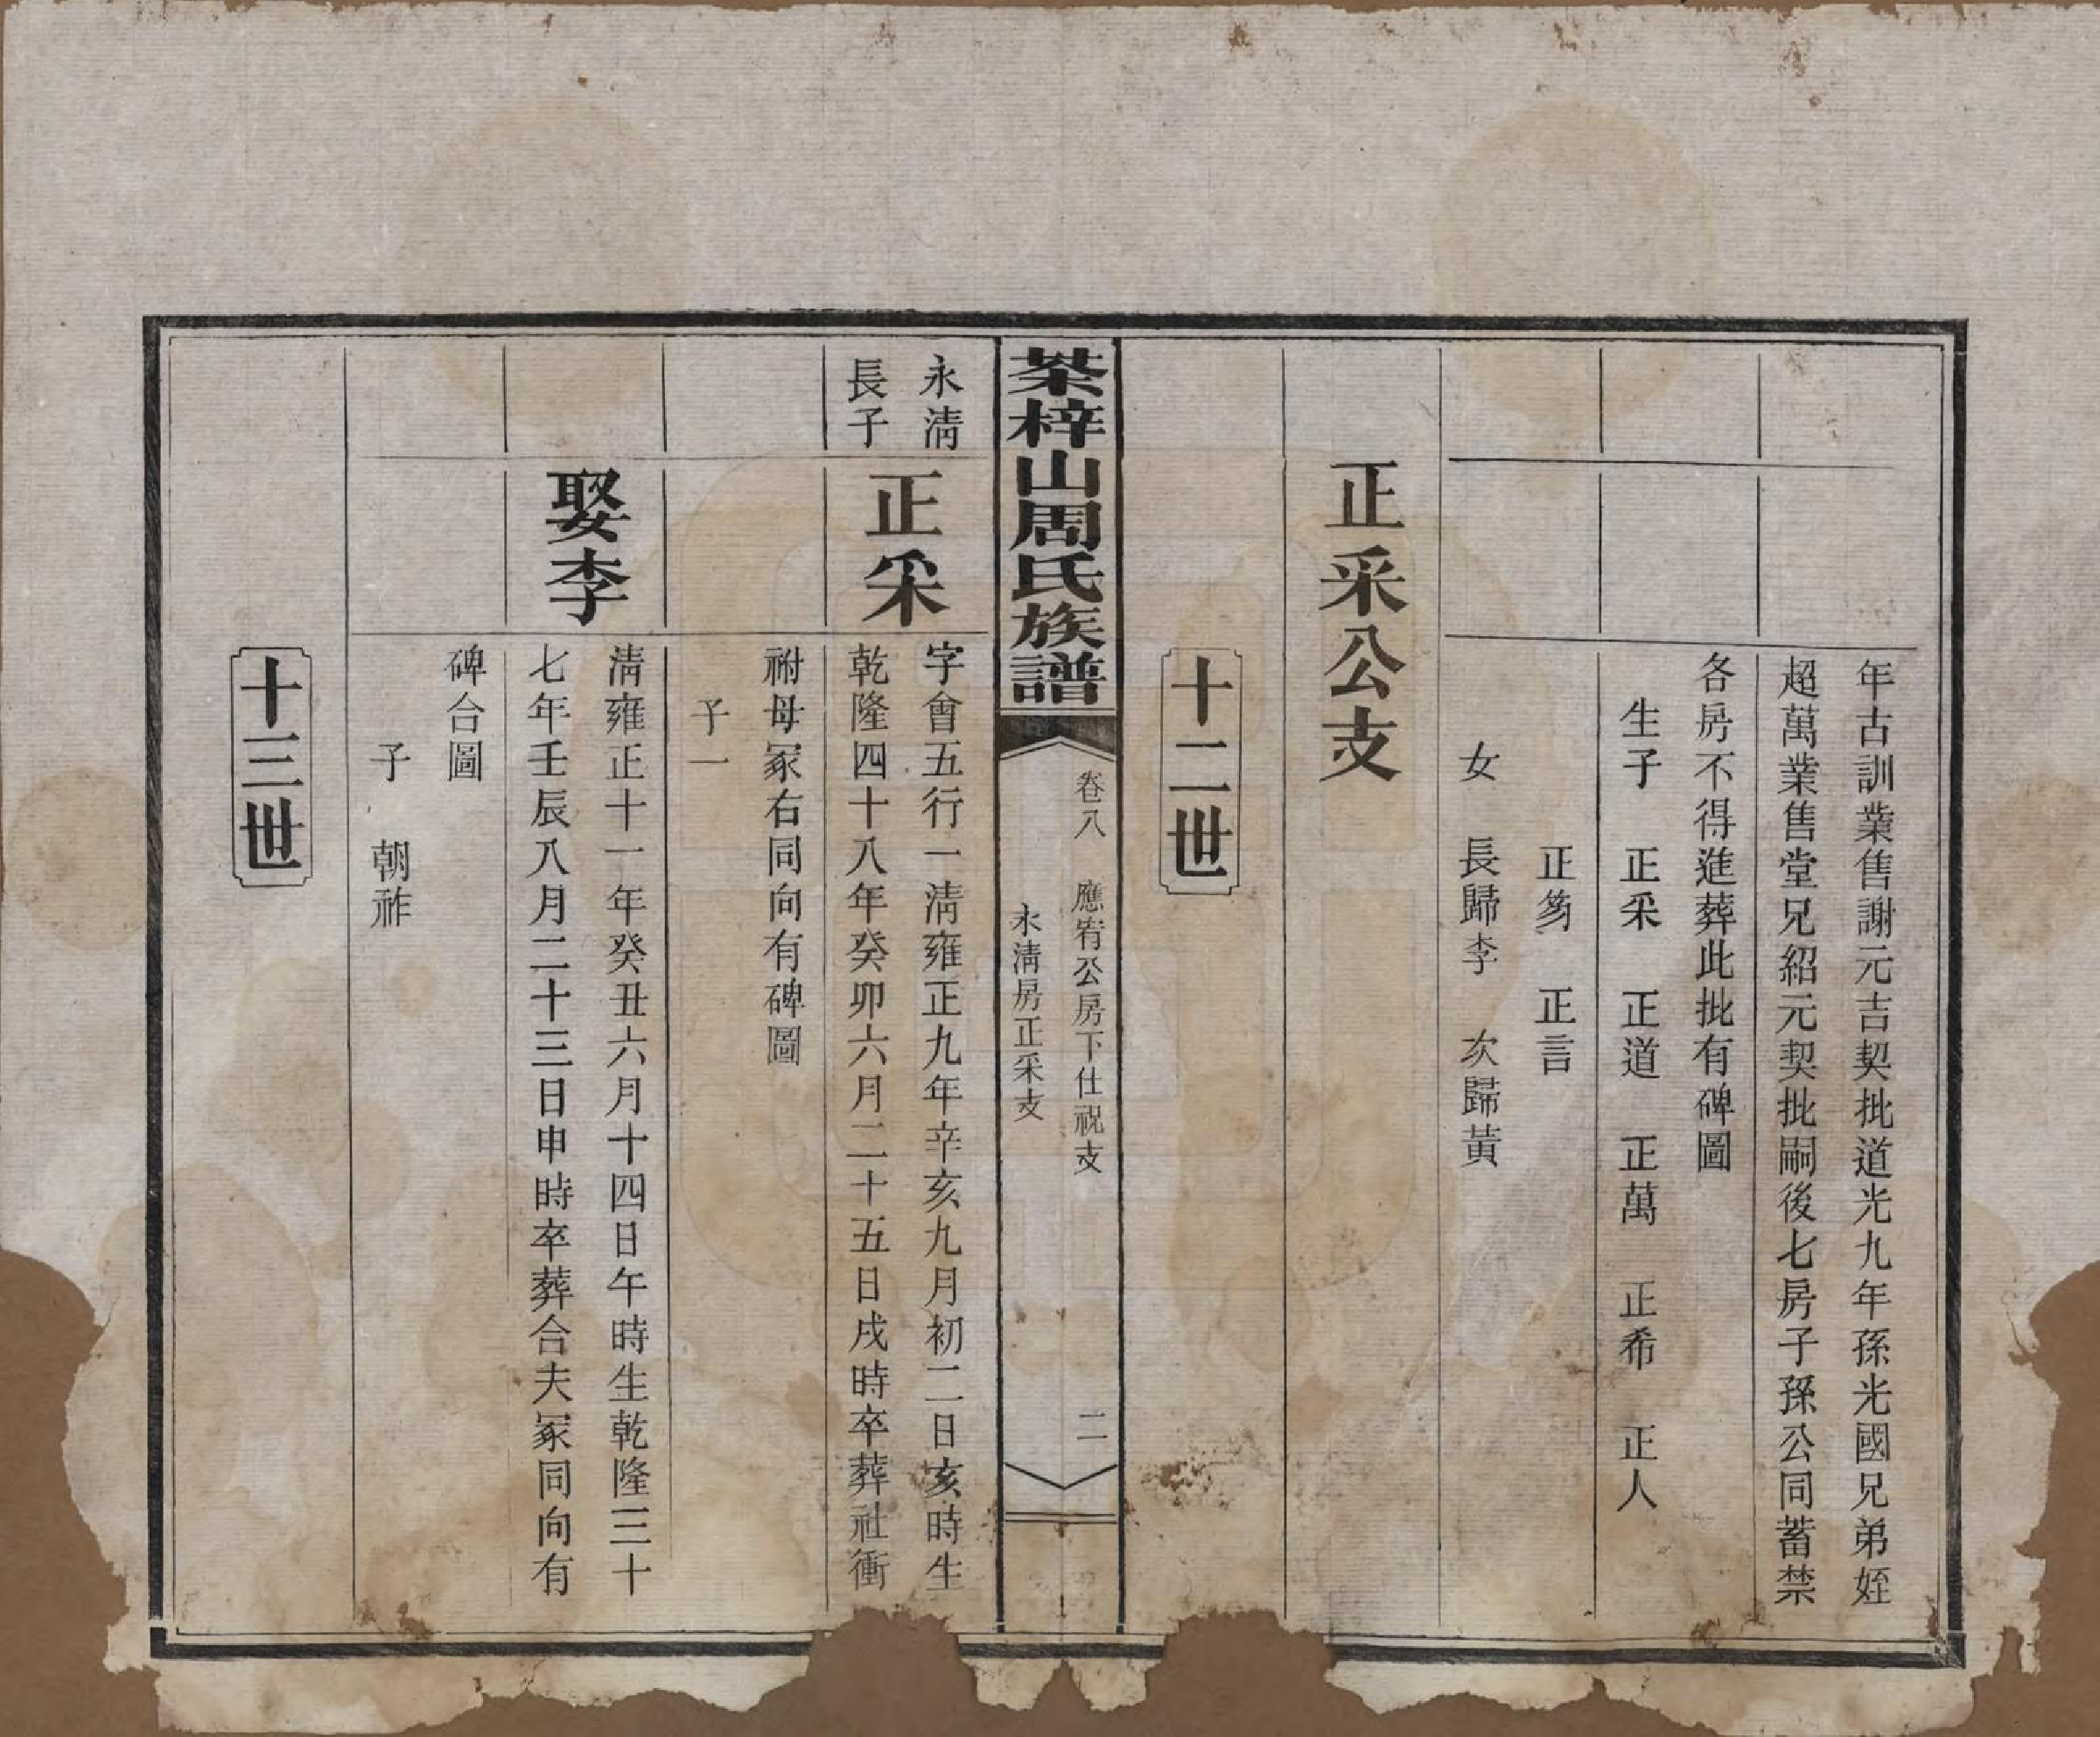 年古訓業售謝元吉契批道光九年孫光國兄弟姪
超萬業售堂兄紹元契批嗣後七房子孫公同蓄禁
各房不得進葬此批有碑圖
生子　正采　正道　正萬　正希　正人
正芻　正言
女　長歸李　次歸黃
正采公支
十二世
棻梓山周氏族譜
卷八　應宥公房下仕視支
永清房正采支
二
永清
長子
正采
字會五行一清雍正九年辛亥九月初二日亥時生
乾隆四十八年癸卯六月二十五日戌時卒葬社衝
祔母冢右同向有碑圖
子一
娶李
清雍正十一年癸丑六月十四日午時生乾隆三十
七年壬辰八月二十三日申時卒葬合夫冢同向有
碑合圖
子　朝祚
十三世